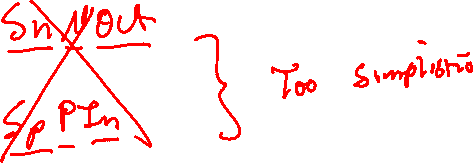 SnNOut
SpPIn
Too simplistic